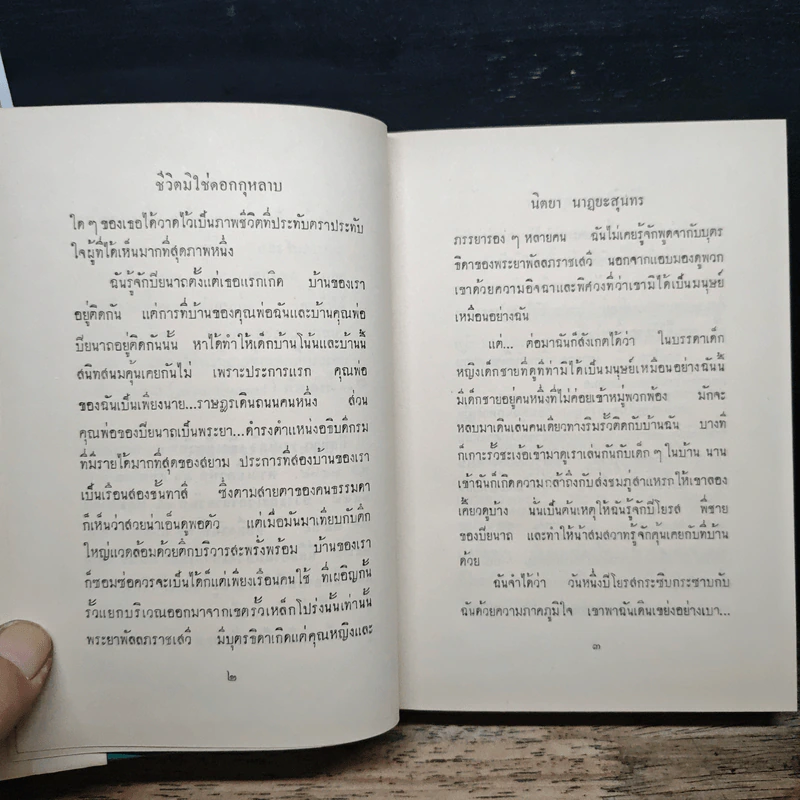 ชีวิตมิใช่ดอกกุหลาบ
ใด ๆ ของเธอได้วาดไว้เป็นภาพชีวิตที่ประทับตราประทับ
ใจผู้ที่ได้เห็นมากที่สุดภาพหนึ่ง
ฉันรู้จักปิยนาถตั้งแต่เธอแรกเกิด บ้านของเรา
อยู่ติดกัน แต่การที่บ้านของคุณพ่อฉันและบ้านคุณพ่อ
ปิยนาถอยู่ติดกันนั้น หาได้ทำให้เด็กบ้านโน้นและบ้านนี้
สนิทสนมคุ้นเคยกันไม่ เพราะประการแรก คุณพ่อ
ของฉันเป็นเพียงนาย...ราษฎรเดินถนนคนหนึ่ง ส่วน
คุณพ่อของปิยนาถเป็นพระยา...ดำรงตำแหน่งอธิบดีกรม
ที่มีรายได้มากที่สุดของสยาม ประการที่สองบ้านของเรา
เป็นเรือนสองชั้นทาสี ซึ่งตามสายตาของคนธรรมดา
ก็เห็นว่าสวยน่าเอ็นดูพอตัว แต่เมื่อมันมาเทียบกับตึก
ใหญ่แวดล้อมด้วยตึกบริวารสะพรั่งพร้อม บ้านของเรา
ก็ซอมซ่อควรจะเป็นได้ก็แต่เพียงเรือนคนใช้ ที่เผอิญกั้น
รั้วแยกบริเวณออกมาจากเขตรั้วเหล็กโปร่งนั้นเท่านั้น
พระยาพัลลภราชเสวี มีบุตรธิดาเกิดแต่คุณหญิงและ
๒
นิตยา นาฏยะสุนทร
ภรรยารอง ๆ หลายคน ฉันไม่เคยรู้จักพูดจากับบุตร
ธิดาของพระยาพัลลภราชเสวี นอกจากแอบมองดูพวก
เขาด้วยความอิจฉาและพิศวงที่ว่าเขามิได้เป็นมนุษย์
เหมือนอย่างฉัน
แต่... ต่อมาฉันก็สังเกตได้ว่า ในบรรดาเด็ก
หญิงเด็กชายที่ดูทีท่ามิได้เป็นมนุษย์เหมือนอย่างฉันนี้
มีเด็กชายอยู่คนหนึ่งที่ไม่ค่อยเข้าหมู่พวกพ้อง มักจะ
หลบมาเดินเล่นคนเดียวทางริมรั้วติดกับบ้านฉัน บางที
ก็เกาะรั้วชะเง้อเข้ามาดูเราเล่นกันกับเด็ก ๆ ในบ้าน นาน
เข้าฉันก็เกิดความกล้าถึงกับส่งชมภู่สาแหรกให้เขาลอง
เคี้ยวดูบ้าง นั่นเป็นต้นเหตุให้ฉันรู้จักปิโยรส พี่ชาย
ของปิยนาถ และทำให้น้าสมสวาทรู้จักคุ้นเคยกับที่บ้าน
ด้วย
ฉันจำได้ว่า วันหนึ่งปิโยรสกระซิบกระซาบกับ
ฉันด้วยความภาคภูมิใจ เขาพาฉันเดินเขย่งอย่างเบา...
๓